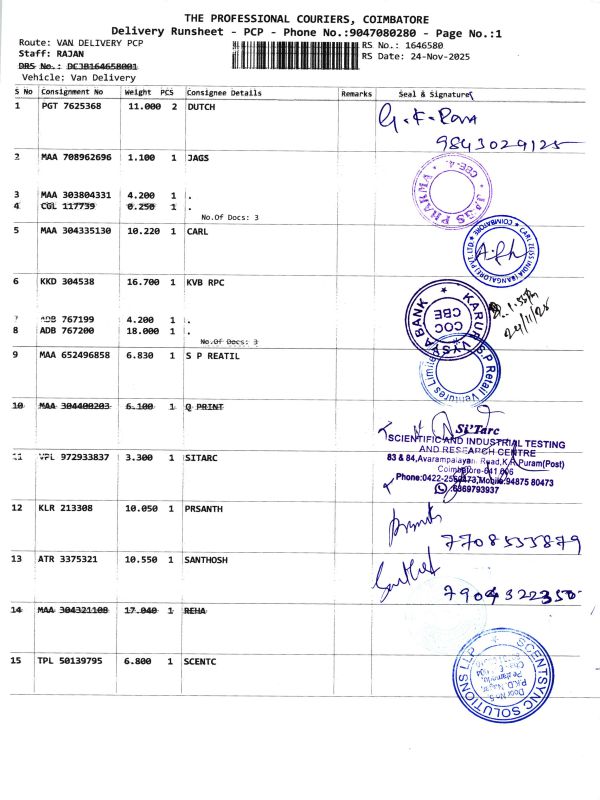 THE PROFESSIONAL COURIERS, COIMBATORE
Delivery Runsheet - PCP - Phone No.:9047080280 - Page No.:1
Route: VAN DELIVERY PCP
RS No.: 1646580
Staff: RAJAN
RS Date: 24-Nov-2025
DRS No.: DCJB164658001
Vehicle: Van Delivery
S No Consignment No Weight PCS Consignee Details Remarks Seal & Signature
1 PGT 7625368 11.000 2 DUTCH
9843029125
2 MAA 708962696 1.100 1 JAGS
JAGS PHARMA * CBE-4.
3 MAA 303804331 4.200 1 .
4 CGL 117739 0.250 1 .
No.Of Docs: 3
5 MAA 304335130 10.220 1 CARL
CARL ZEISS INDIA (BANGALORE) PVT.LTD. * COIMBATORE *
6 KKD 304538 16.700 1 KVB RPC
KARUR VYSYA BANK *
COC
CBE
24/11/25
7 ADB 767199 4.200 1 .
8 ADB 767200 18.000 1 .
No.Of Docs: 3
9 MAA 652496858 6.830 1 S P REATIL
S.P Retail Ventures Limited
10 MAA 304400203 6.100 1 Q PRINT
Si'Tarc
SCIENTIFIC AND INDUSTRIAL TESTING
AND RESEARCH CENTRE
83 & 84,Avarampalayan Road,K.R.Puram(Post)
Coimbatore-641 006
11 VPL 972933837 3.300 1 SITARC
Mobile:94875 80473
6369793937
12 KLR 213308 10.050 1 PRSANTH
7708533879
13 ATR 3375321 10.550 1 SANTHOSH
7904322350
14 MAA 304321108 17.040 1 REHA
15 TPL 50139795 6.800 1 SCENTC
SCENTSYNC SOLUTIONS LLP
Door No.5,
P.K.D. Nagar,